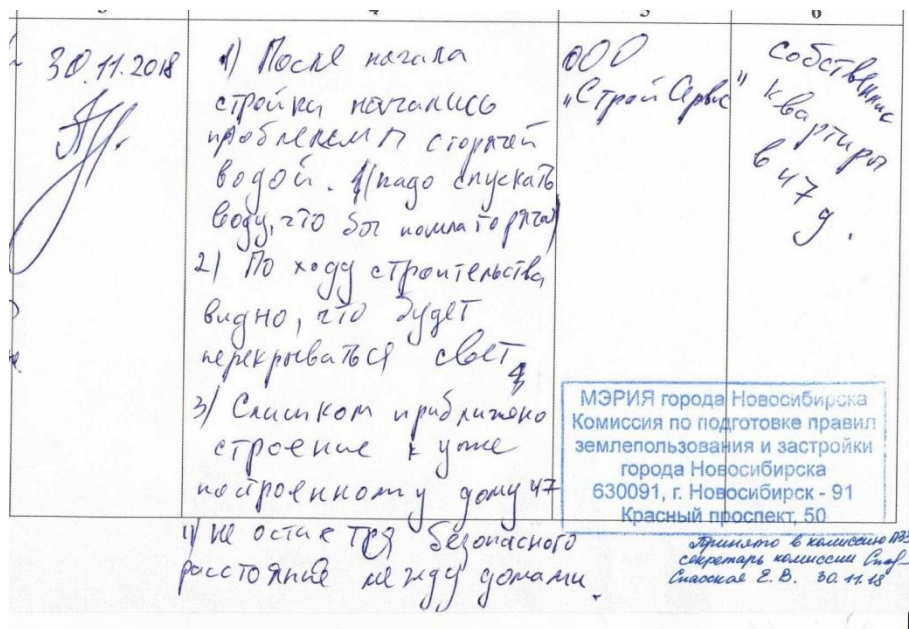 3
4
5
6
30.11.2018
1) После начала
стройки начались
проблемы с горячей
водой. (надо спускать
воду, что бы пошла горячая)
2) По ходу строительства
видно, что будет
перекрываться свет
3) Слишком приближено
строение к уже
построенному дому 47
4) не остается безопасного
расстояние между домами.
ООО
"Строй Сервис"
собственник
квартиры
в 47
д.
МЭРИЯ города Новосибирска
Комиссия по подготовке правил
землепользования и застройки
города Новосибирска
630091, г. Новосибирск - 91
Красный проспект, 50
Принято в комиссию ПЗЗ
секретарь комиссии
Спасская Е. В. 30.11.18